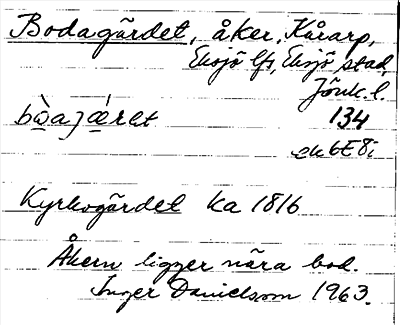 Bodagärdet, åker, Kårarp,
Eksjö lfs, Eksjö stad,
Jönk. l.
134
ek 6E8i
Kyrkogärdet ka 1816
Åkern ligger nära bod.
Inger Danielsson 1963.